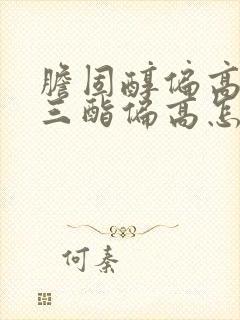 膽固醇偏高
三酯偏高怎
何秦